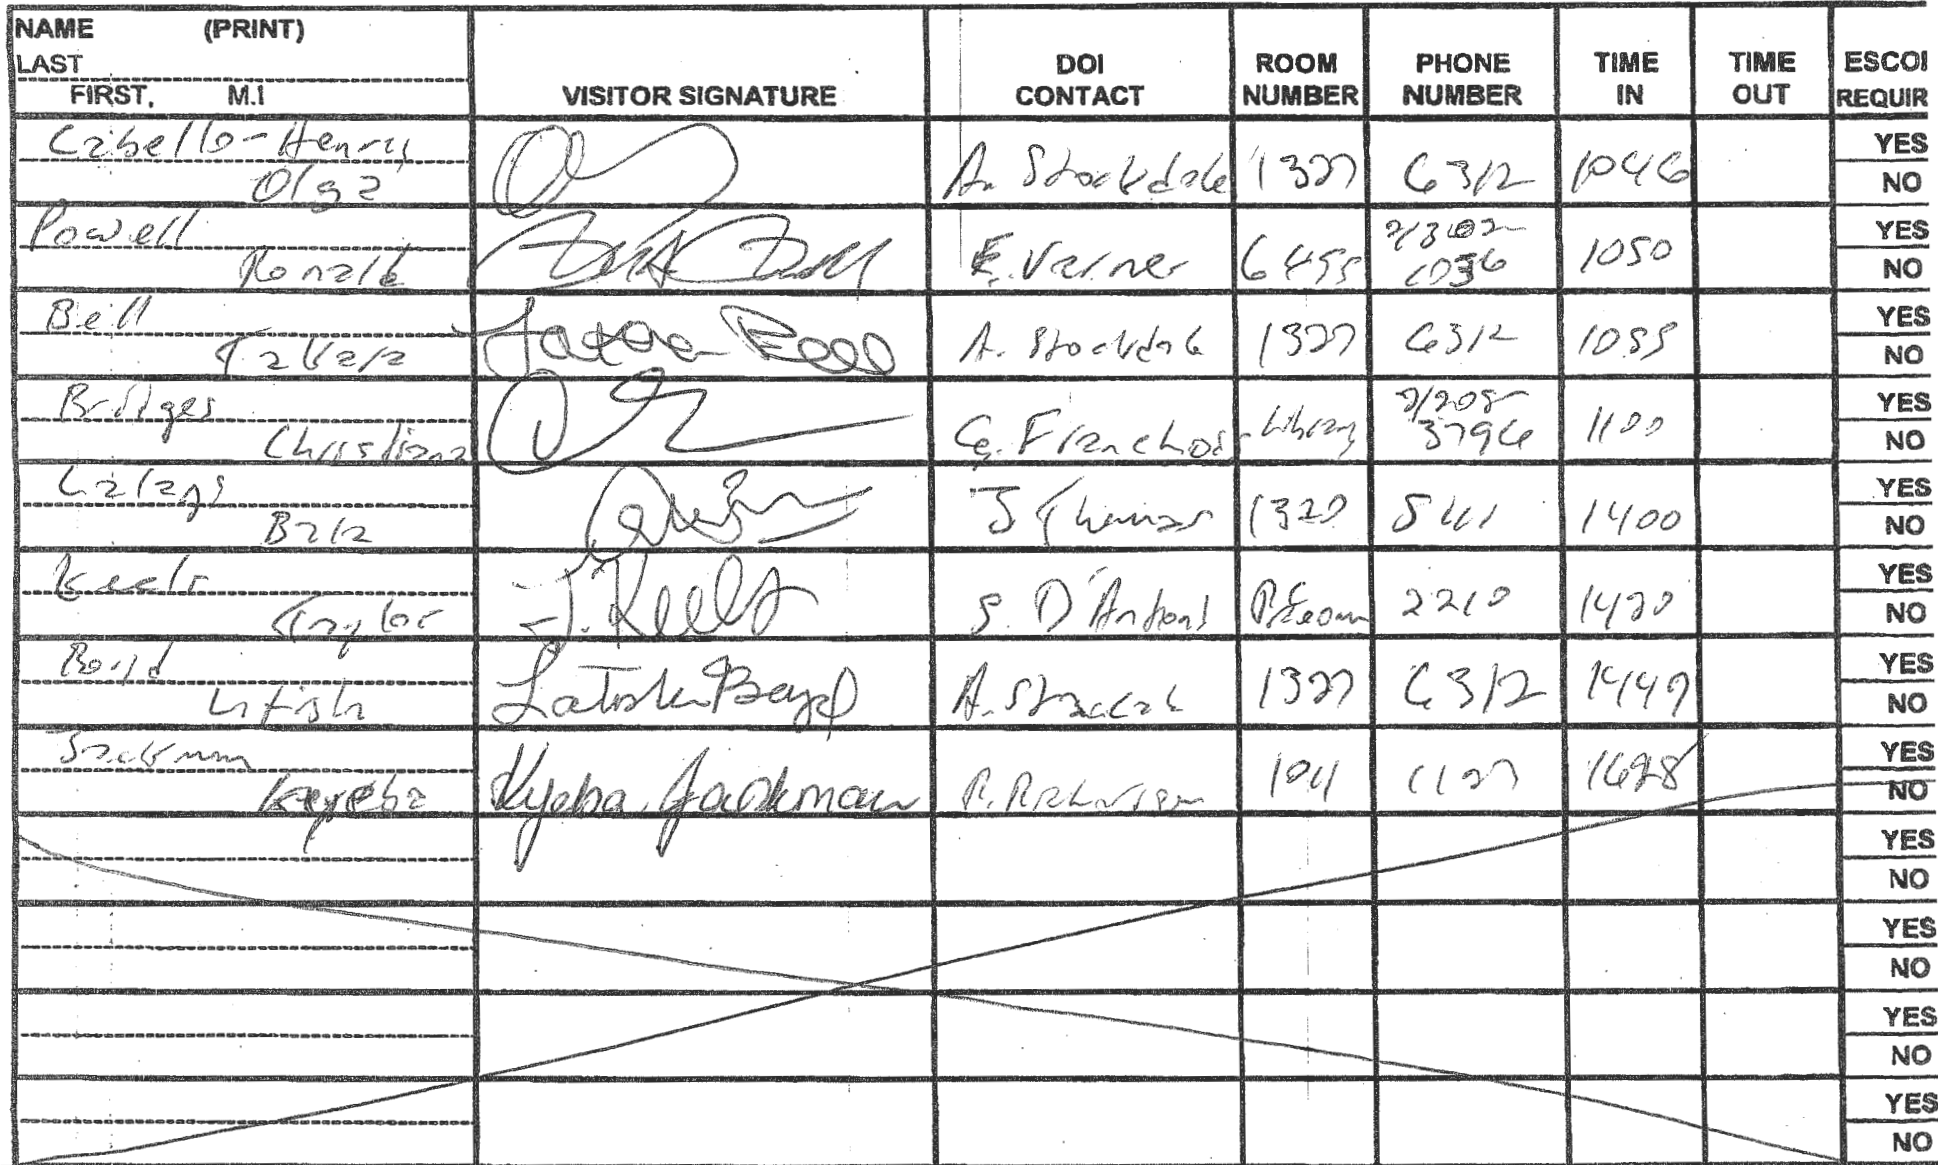 NAME (PRINT)
LAST
FIRST, M.I
VISITOR SIGNATURE
DOI
CONTACT
ROOM
NUMBER
PHONE
NUMBER
TIME
IN
TIME
OUT
ESCOI
REQUIR
Cabello-Henry
Olga
A. Stockdale 1327 6312 1046
YES
NO
Powell
Ronald
E. Varner 6455 1050
YES
NO
Bell
Tatara Bell
A. Stockdale 1327 6312 1055
YES
NO
Bridges
Christiana
Library 9/208-
3796 1100
YES
NO
Bala
J Thomas 1320 1400
YES
NO
Keels
Taylor
J. Keels
S. D'Antoni 2210 1420
YES
NO
Boyd
Latish
Latisha Boyd
1327 6312 1447
YES
NO
Jackman
Keyeba
Kyeba Jackman
1041 1127 1628
YES
NO
YES
NO
YES
NO
YES
NO
YES
NO